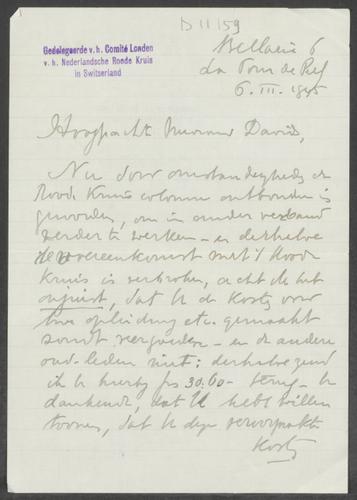 D II 159
Gedelegeerde v.h. Comité Londen
v. h. Nederlandsche Roode Kruis
in Switserland
Bellaria 6
La Tour de Peilz
6. III. 1945
Hooggeachte Mevrouw Davids,
Nu door omstandigheden de
Roode Kruis colonne ontbonden is
geworden, om in ander verband
verder te werken - en derhalve
de overeenkomst met 't Roode
Kruis is verbroken, acht ik het
onjuist, dat U de kosten voor
Uwe opleiding etc. gemaakt
zoudt vergoeden - en de andere
oud-leden niet: derhalve zend
ik U hierbij frs 30.60- terug - U
dankende, dat U hebt willen
toonen, dat U deze veroorzaakte
kosten